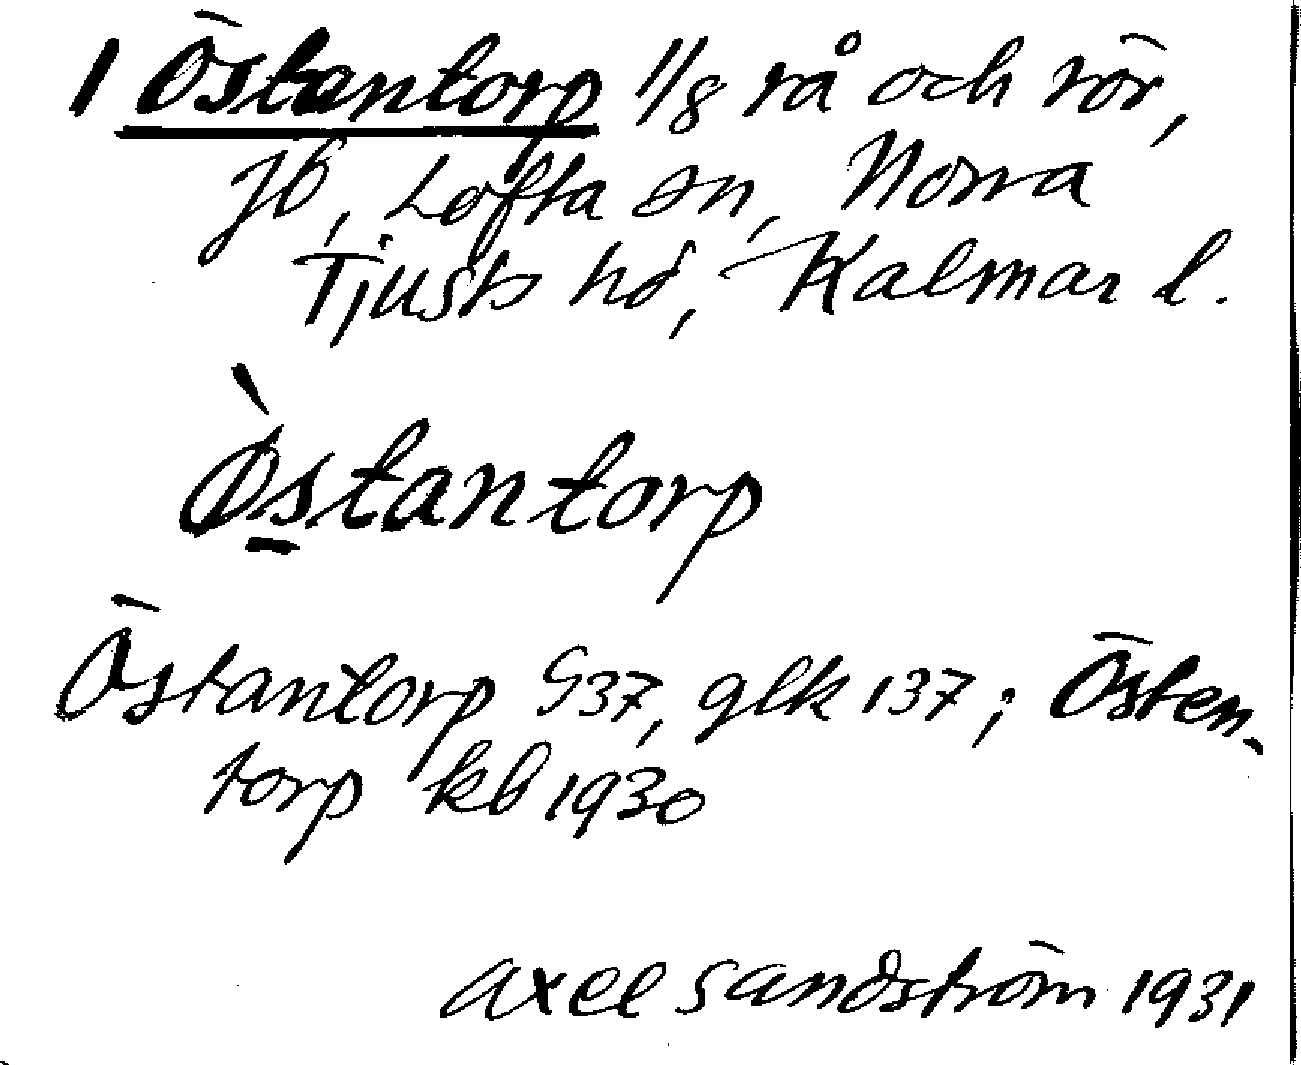 1 Östantorp 1/8 rå och rör,
Jb, Lofta sn, Norra
Tjusts hd, Kalmar l.
Östantorp
Östantorp S37, glk 137; Östen-
torp kb 1930
Axel Sandström 1931